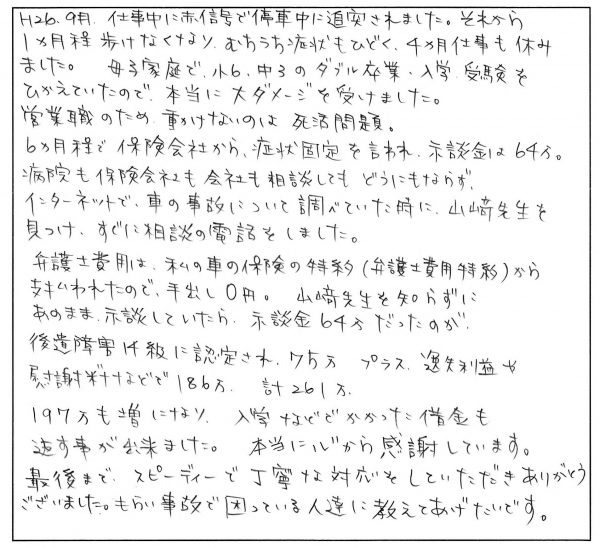 H26.9月、仕事中に赤信号で停車中に追突されました。それから
1ヵ月程歩けなくなり、むちうち症状もひどく、4ヵ月仕事も休み
ました。 母子家庭で、小6、中3のダブル卒業・入学、受験を
ひかえていたので、本当に大ダメージを受けました。
営業職のため、動けないのは死活問題。
6ヵ月程で保険会社から、症状固定を言われ、示談金は64万。
病院も保険会社も会社も相談してもどうにもならず、
インターネットで、車の事故について調べていた時に、山﨑先生を
見つけ、すぐに相談の電話をしました。
弁護士費用は、私の車の保険の特約(弁護士費用特約)から
支払われたので、手出し0円。 山﨑先生を知らずに
あのまま、示談していたら、示談金64万だったのが、
後遺障害14級に認定され、75万 プラス、逸失利益や
慰謝料などで186万、 計261万、
197万も増になり、 入学などでかかった借金も
返す事が出来ました。 本当に心から感謝しています。
最後まで、スピーディーで丁寧な対応をしていただきありがとう
ございました。もらい事故で困っている人達に教えてあげたいです。